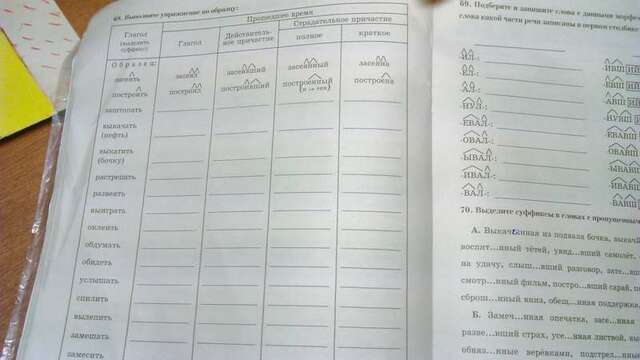 68. Выполните упражнение по образцу:
Глагол (выделить суффикс)
Прошедшее время
Страдательное причастие
Глагол
Действительное причастие
полное
краткое
Образец:
засеять засеял засеявший засеянный засеяна
построить построил построивший построенный построена
заштопать
выкачать (нефть)
выкатить (бочку)
растрепать
развеять
выиграть
оклеить
обдумать
обидеть
услышать
спилить
вылепить
замешать
замесить
69. Подберите и запишите слова с данными
слова какой части речи записаны в первом столбике
-ИЛ-:
-ЕЛ-:
-АЛ-:
-НУЛ-:
-ЕВАЛ-:
-ОВАЛ-:
-ЫВАЛ-:
-ИВАЛ-:
-ВАЛ-:
70. Выделите суффиксы в словах с пропущенным
А. Выкач нная из подвала бочка,
воспит...нный тётей, увид...вший самолёт,
на удачу, слыш...вший разговор,
смотр...нный фильм, постро...вший сарай,
сброш...нный вниз, общ...нная поддержка.
Б. Замеч...нная опечатка,
разве...вший страх, усе...нная листвой,
обвяз...нный верёвками,